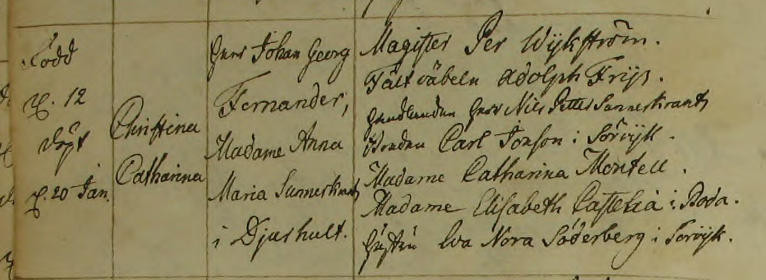 Född
d. 12
döpt
d. 20 Jan.
Christina
Catharina
Herr Johan Georg
Fernander,
Madame Anna
Maria Sunnerkrantz
i Djurhult.
Magister Per Wykström.
Fältväbeln Adolph Frijs.
Handlanden Herr Nils Petter Sunnerkrantz
Bonden Carl Jonson i Sörvijk.
Madame Catharina Montell.
Madame Elisabeth i Boda.
Hustru Eva Nora Söderberg i Sörvijk.